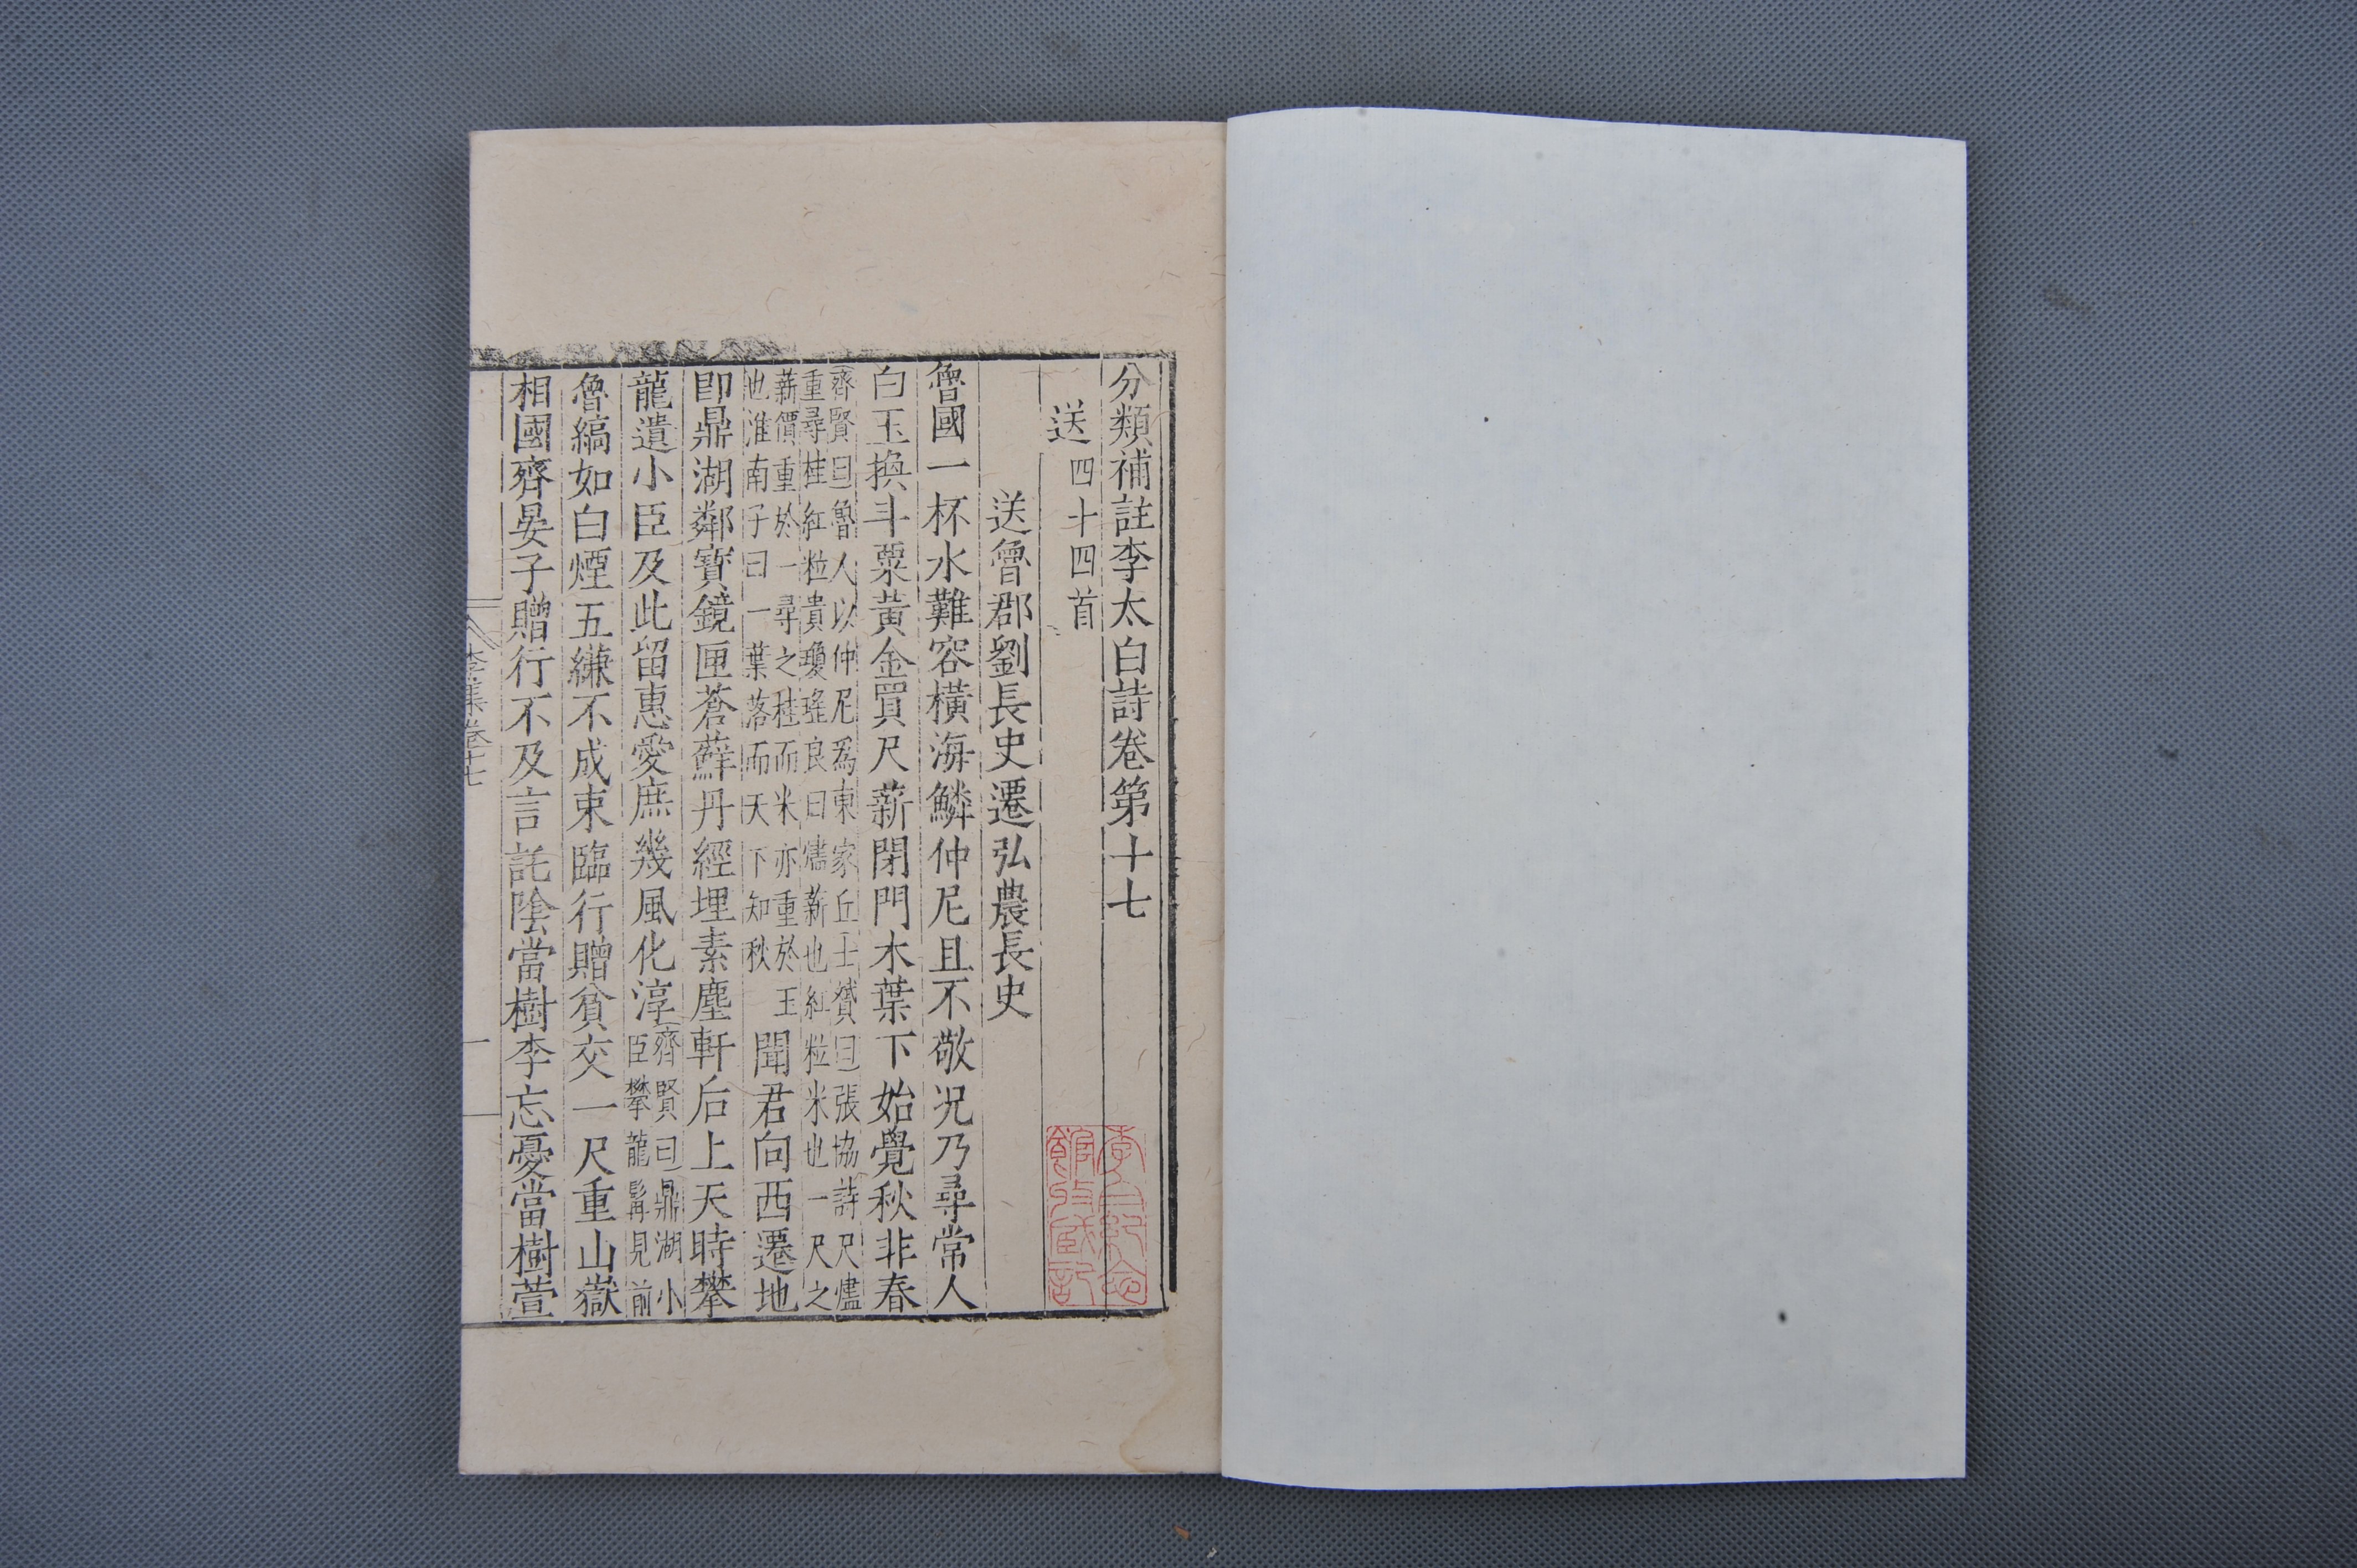 分類補註李太白詩卷第十七
送四十四首
送魯郡劉長史遷弘農長史
魯國一杯水難容橫海鱗仲尼且不敬況乃尋常人
白玉換斗粟黃金買尺薪閉門木葉下始覺秋非春
齊賢曰魯人以仲尼爲東家丘士贇曰張協詩尺燼
重尋桂紅粒貴瓊瑤良曰燼薪也紅粒米也一尺之
薪價重於一尋之桂而米亦重於玉
也淮南子曰一葉落而天下知秋
聞君向西遷地
即鼎湖鄰寶鏡匣蒼蘚丹經埋素塵軒后上天時攀
龍遺小臣及此留惠愛庶幾風化淳
齊賢曰鼎湖小
臣攀龍髯見前
魯縞如白煙五縑不成束臨行贈貧交一尺重山嶽
相國齊晏子贈行不及言託陰當樹李忘憂當樹萱
李集卷十七
一
館收藏記